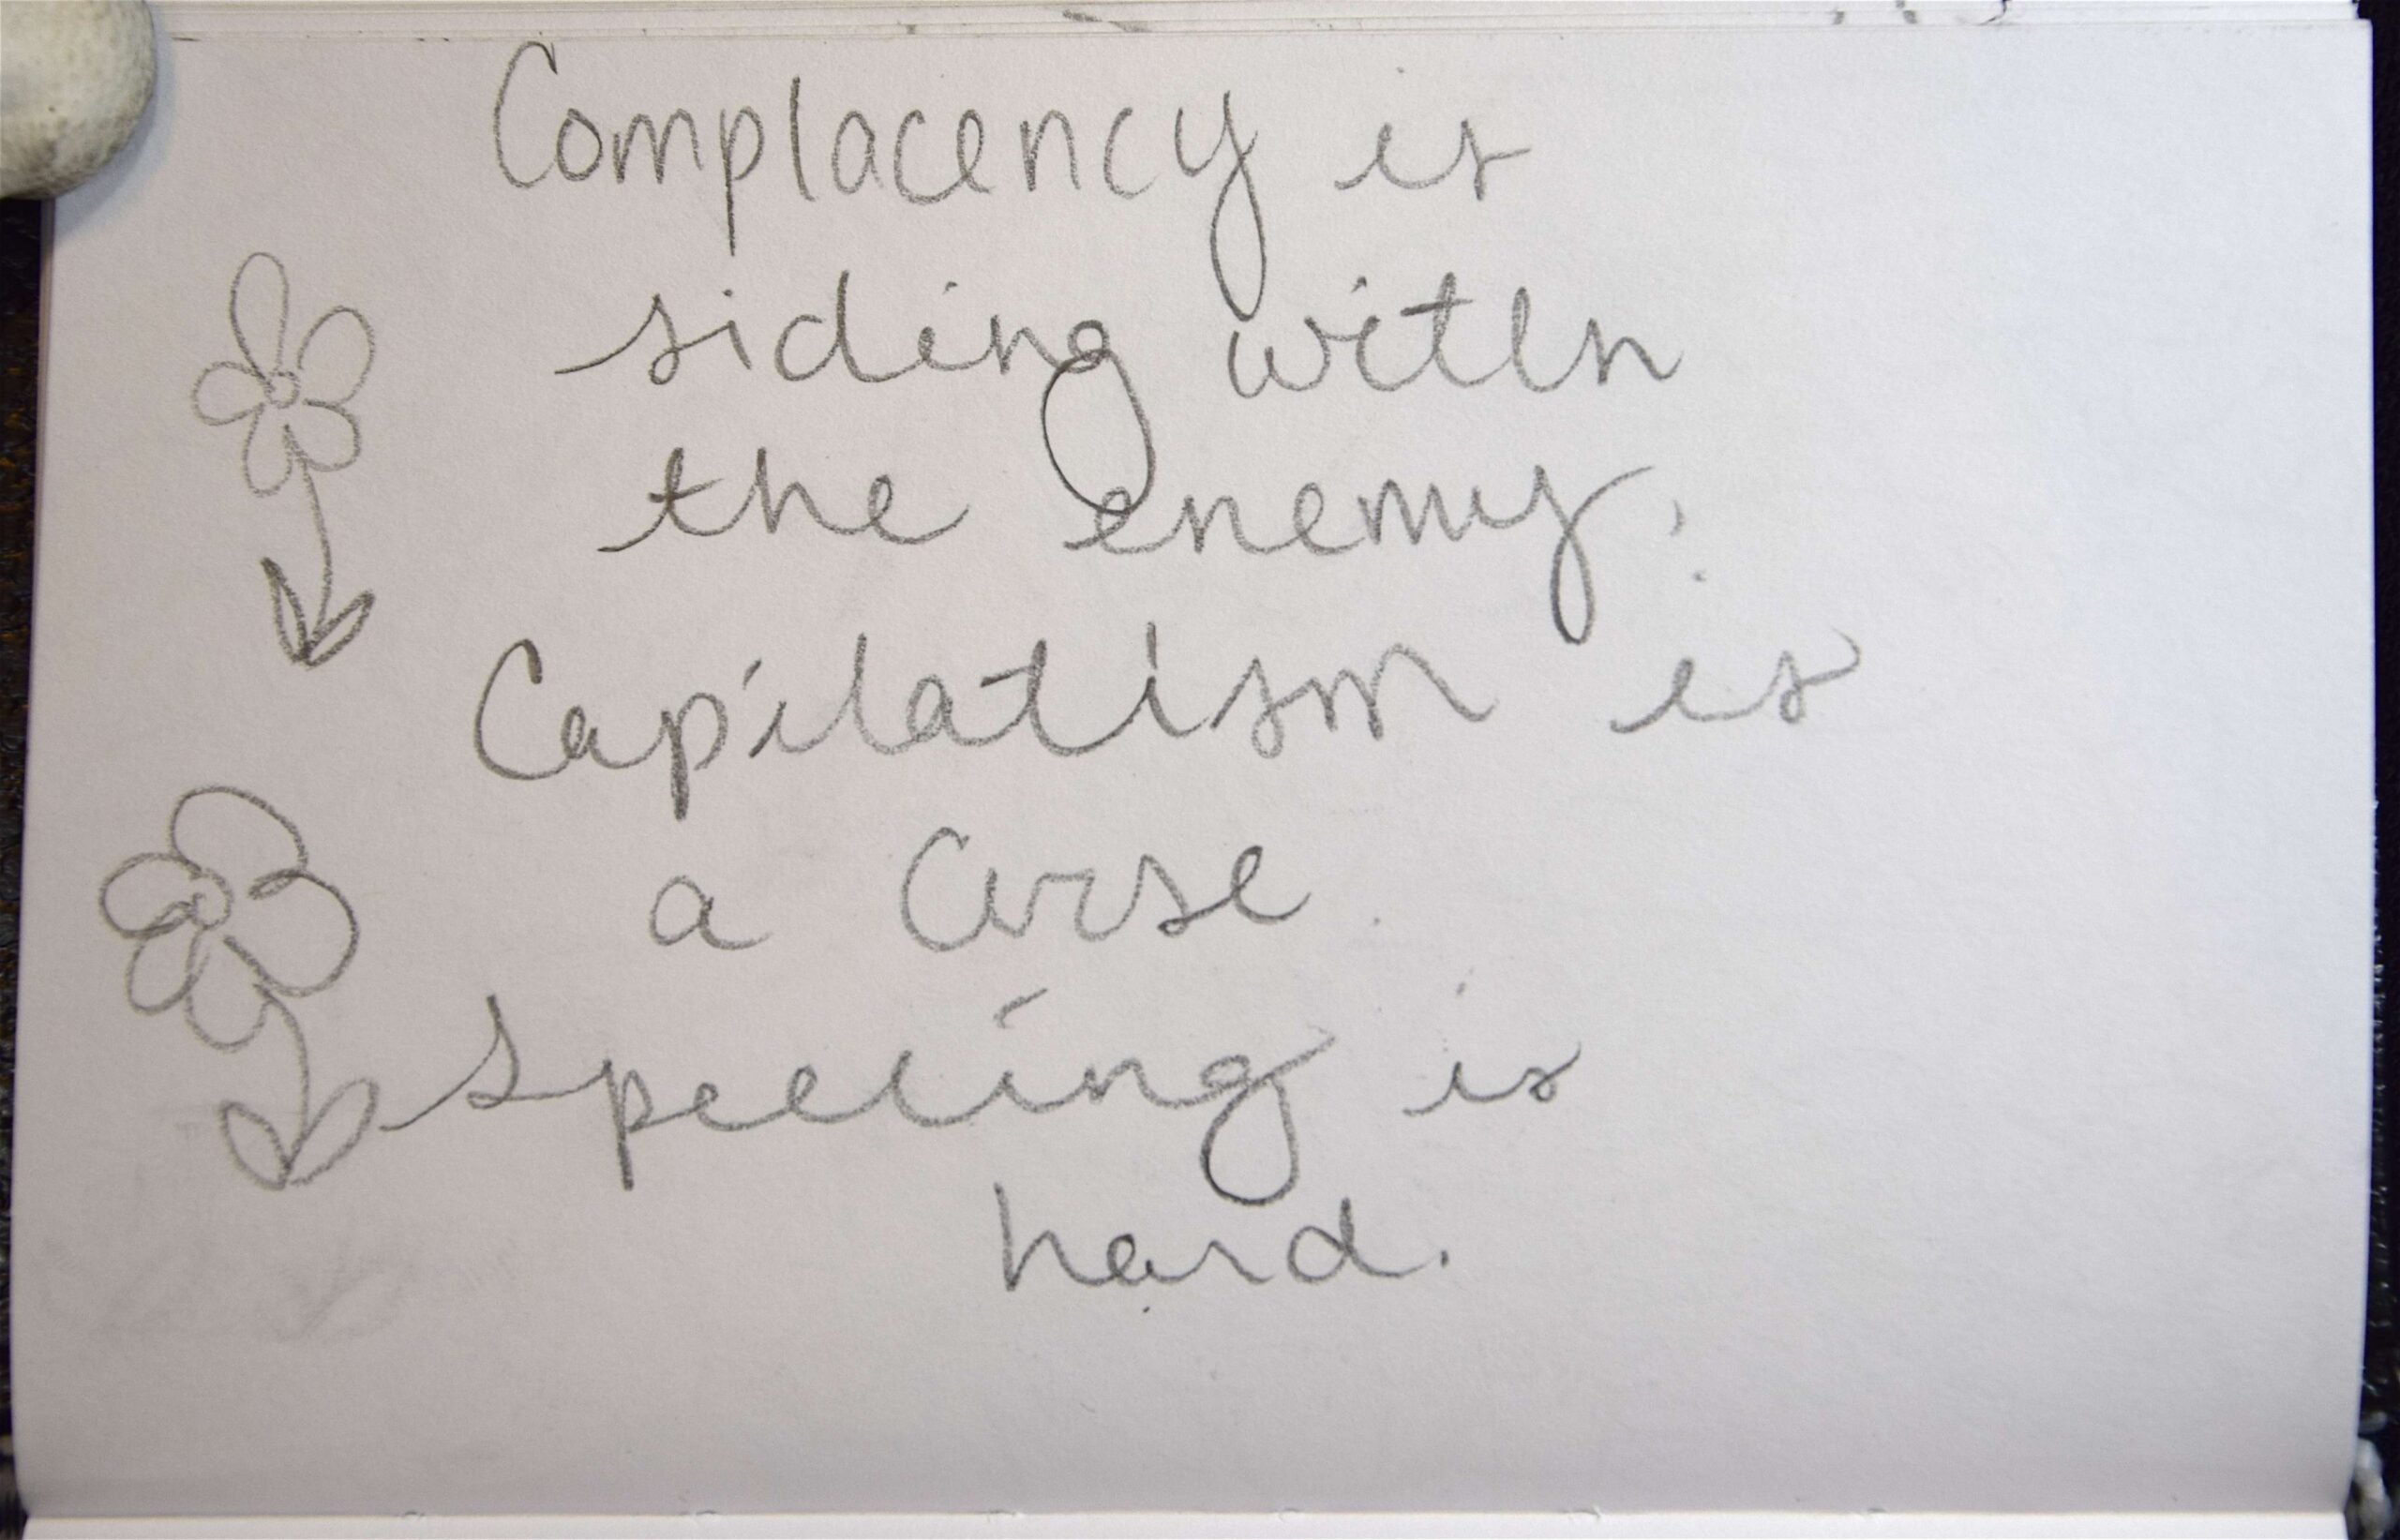 Complacency is
siding with
the enemy.
Capilatism is
a Curse
Spelling is
hard.